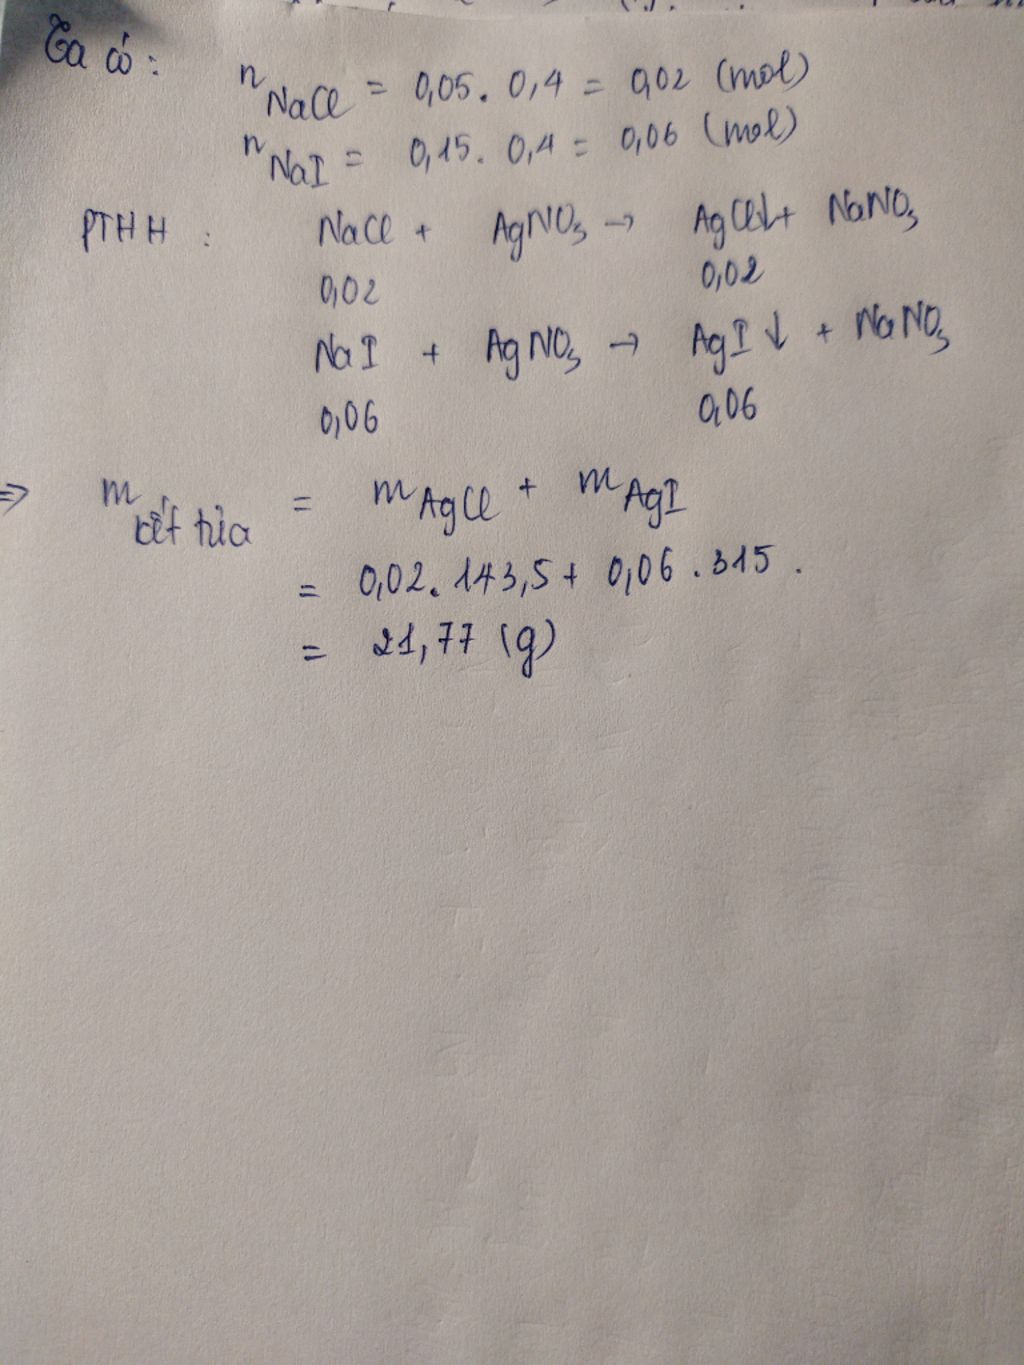 Ta có : n NaCl = 0,05 . 0,4 = 0,02 (mol)
n NaI = 0,15 . 0,4 = 0,06 (mol)
PTHH : NaCl + AgNO3 → AgCl↓ + NaNO3
0,02 0,02
NaI + AgNO3 → AgI ↓ + NaNO3
0,06 0,06
⇒ m kết tủa = m AgCl + m AgI
= 0,02 . 143,5 + 0,06 . 315 .
= 21,77 (g)